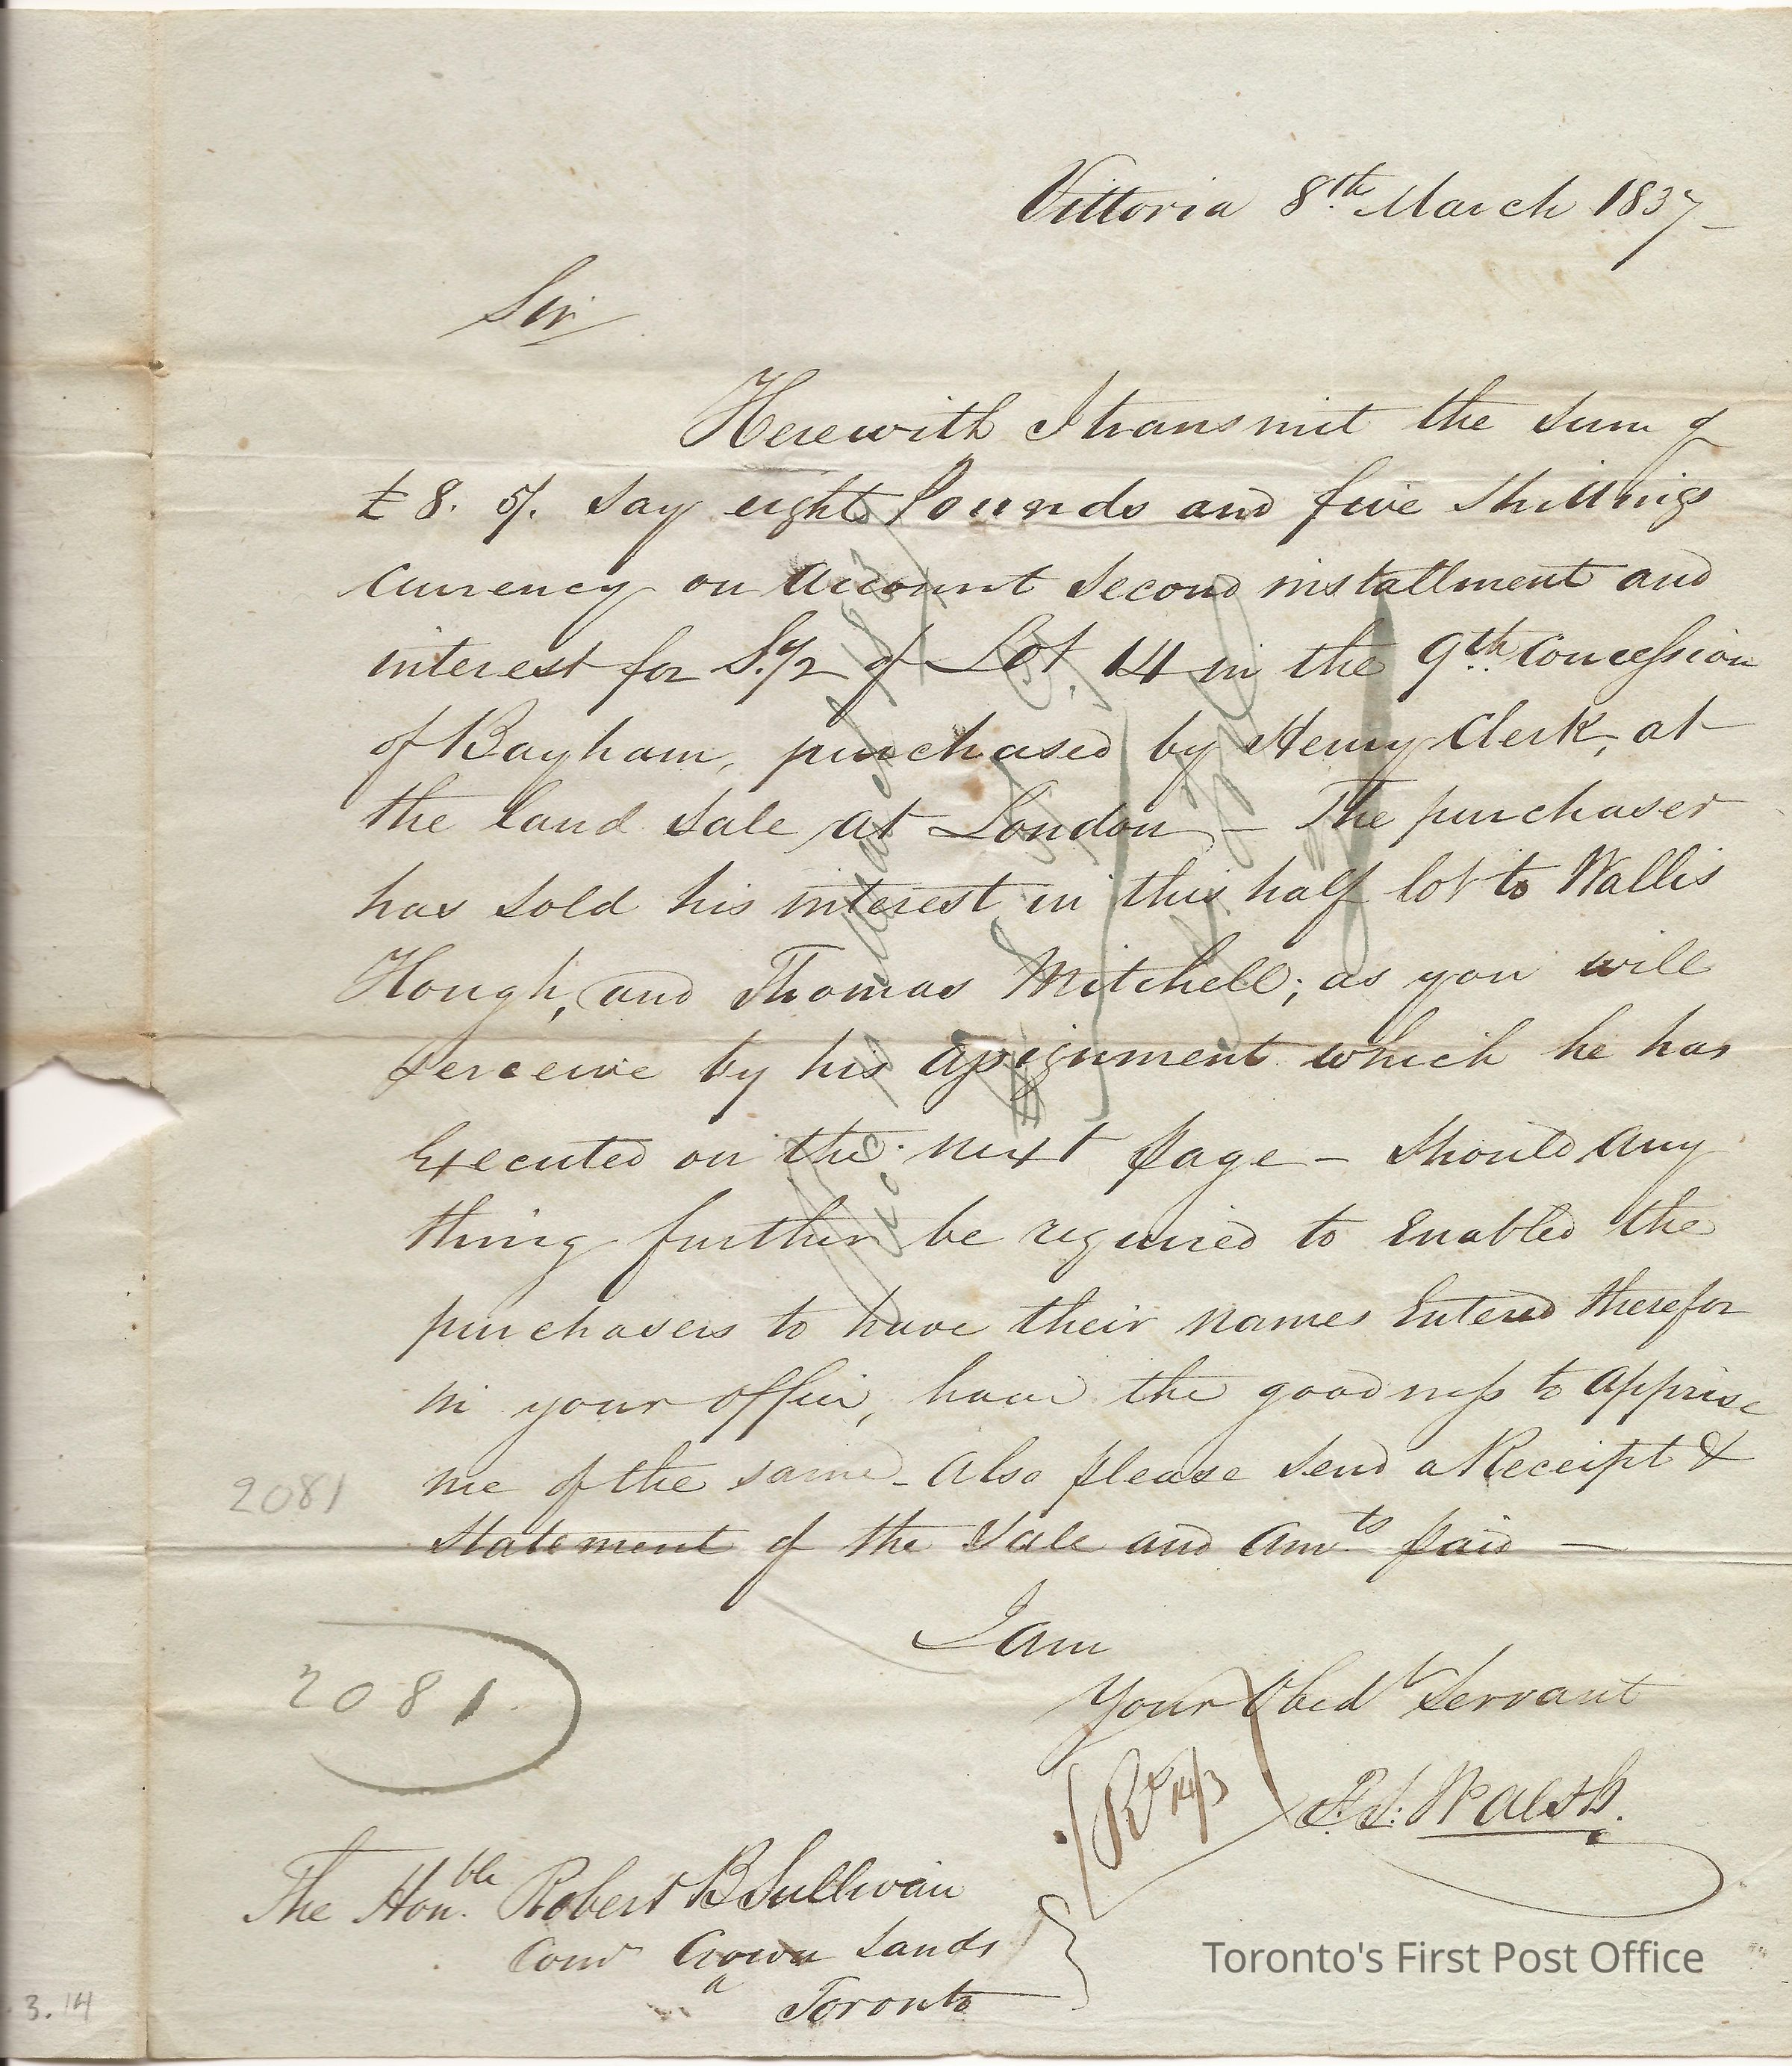 Vittoria 8th March 1837 —
Sir
Herewith I transmit the sum of
£8. 5/. say eight Pounds and five Shillings
Currency on Account Second installment and
interest for S. 1/2 of Lot. 14 in the 9th Concession
of Bayham, purchased by Henry Clerk, at
the land Sale at London — The purchaser
has sold his interest in this half lot to Wallis
Hough, and Thomas Mitchell; as you will
perceive by his assignment which he has
Executed on the next page — Should any
thing further be required to Enabled the
purchasers to have their names Entered therefor
in your office, have the goodness to apprise
me of the same – also please send a Receipt &
2081
Statement of the Sale and Amts paid —
I am
2081
Your Obedt Servant
F. L. Walsh.
The Honble Robert B Sullivan
Comr Crown Lands
Toronto
Toronto's First Post Office
3.14